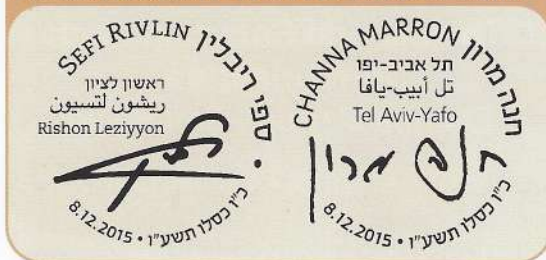 SEFI RIVLIN ספי ריבלין
ראשון לציון
ريشون لتسيون
Rishon Leziyyon
8.12.2015 • כ"ו כסלו תשע"ו •
CHANNA MARRON חנה מרון
תל אביב-יפו
تل أبيب-يافا
Tel Aviv-Yafo
חנה מרון
8.12.2015 • כ"ו כסלו תשע"ו